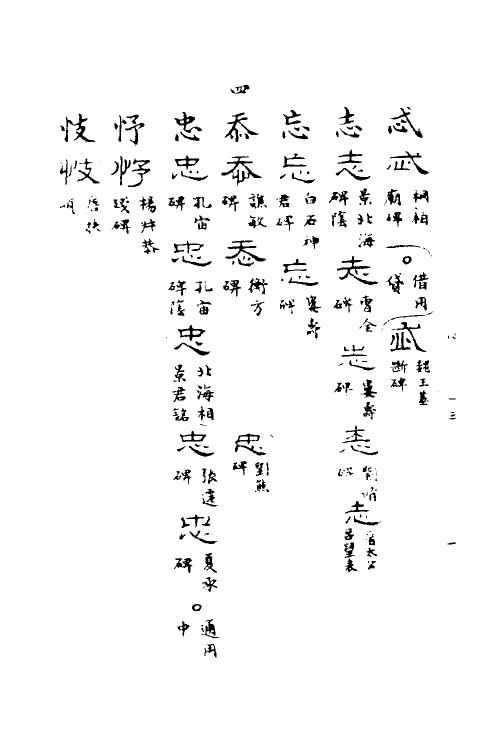 忒忒 桐柏廟碑 ○借用貸 忒 魏王基斷碑
志志 景北海碑陰 志 曹全碑 志 婁壽碑 志 劉脩碑 志 晉太公呂望表
忘忘 白石神君碑 忘 婁壽碑
四
忝忝 譙敏碑 忝 衡方碑 忠 劉熊碑
忠忠 孔宙碑 忠 孔宙碑陰 忠 北海相景君銘 忠 張遷碑 忠 夏承碑 ○通用中
忬忬 楊叔恭殘碑
忮忮 唐扶頌
心
一三
一